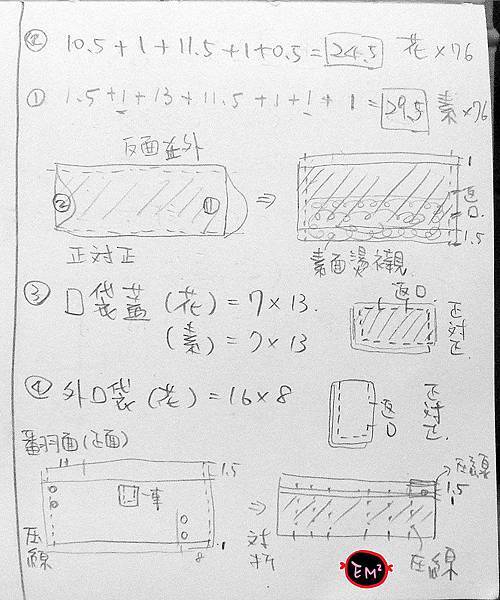 ② 10.5+1+11.5+1+0.5=24.5 花×76
① 1.5+1+13+11.5+1+1+1=29.5 素×76
反面在外
② ①
⇒
1
返口
1.5
正対正
素面燙襯
③ 口袋蓋(花)=7×13.
(素)=7×13
返口
正対正.
④ 外口袋(花)=16×8
返口
正対正.
翻羽面(正面)
1.5
車
壓線
8
1
⇒
対折
1.5
1
圧線
EM²